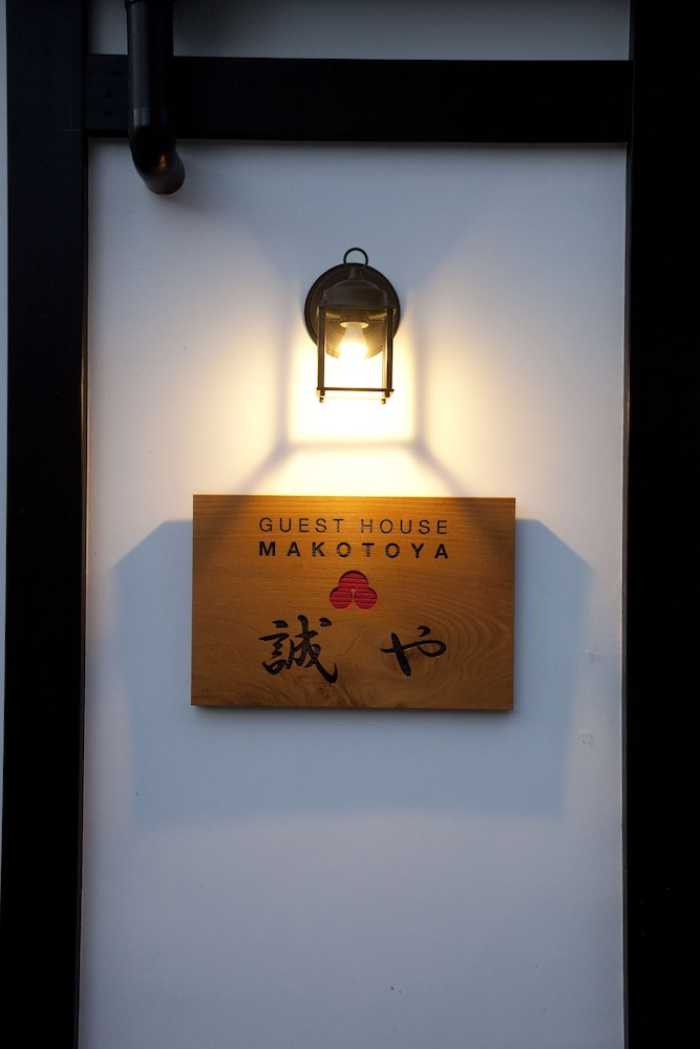 GUEST HOUSE
MAKOTOYA
誠や